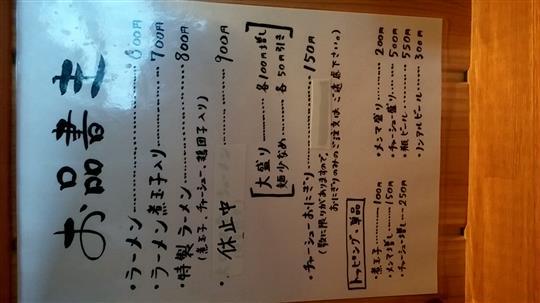 お品書き
・ラーメン 600円
・ラーメン煮玉子入り 700円
・特製ラーメン 800円
(煮玉子、チャーシュー、鶏団子入り)
・休止中 900円
大盛り 各100円増し
麺少なめ 各50円引き
・チャーシューおにぎり 150円
(数に限りがありますので、
おにぎりのみのご注文は ご遠慮下さい。)
トッピング・単品
・煮玉子 100円
・メンマ増し 150円
・チャーシュー増し 250円
・メンマ盛り 200円
・チャーシュー盛り 500円
・瓶ビール 550円
・ノンアルビール 300円